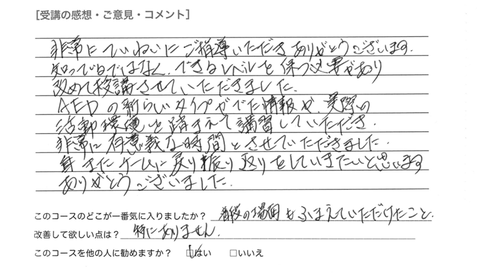 [受講の感想・ご意見・コメント]
非常にていねいにご指導いただきありがとうございます.
知っているではなく、できるレベルを保つ必要があり
改めて受講させていただきました.
AEDの新らしいタイプがでた情報や、実際の
活動環境を踏まえて講習していただき
非常に有意義な時間とさせていただきました.
またチームに戻り振り返りをしていきたいと思います
ありがとうございました.
このコースのどこが一番気に入りましたか? の場面をふまえていただけたこと.
改善して欲しい点は? 特にありません.
このコースを他の人に勧めますか? ☑はい □いいえ